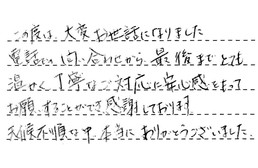 この度は、大変お世話になりました
電話での問い合わせから、最後までとても
温かく、丁寧なご対応に安心感をもって
お願いすることができ、感謝しております
天候不順な中、本当にありがとうございました。